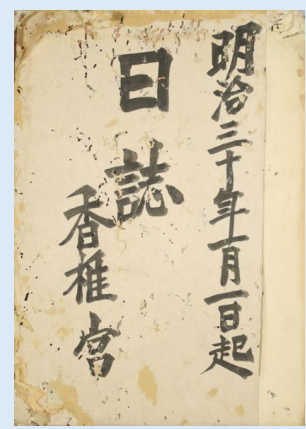 明治三十年一月一日起
日誌
香椎宮